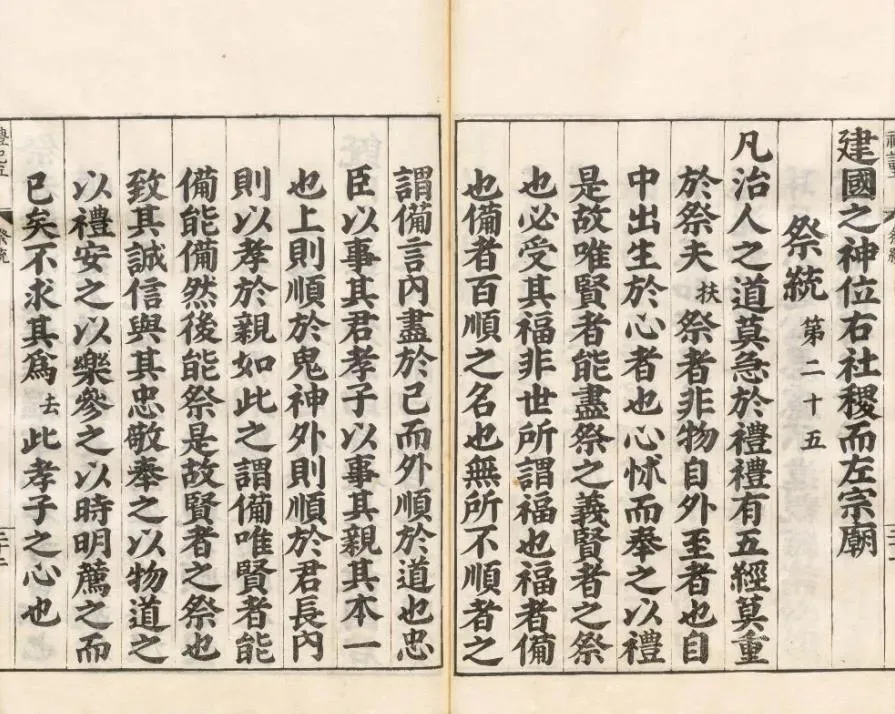 建國之神位右社稷而左宗廟
祭統第二十五
凡治人之道莫急於禮禮有五經莫重
於祭夫扶祭者非物自外至者也自
中出生於心者也心怵而奉之以禮
是故唯賢者能盡祭之義賢者之祭
也必受其福非世所謂福也福者備
也備者百順之名也無所不順者之
謂備言內盡於己而外順於道也忠
臣以事其君孝子以事其親其本一
也上則順於鬼神外則順於君長內
則以孝於親如此之謂備唯賢者能
備能備然後能祭是故賢者之祭也
致其誠信與其忠敬奉之以物道之
以禮安之以樂參之以時明薦之而
已矣不求其為去此孝子之心也
禮記五
祭統